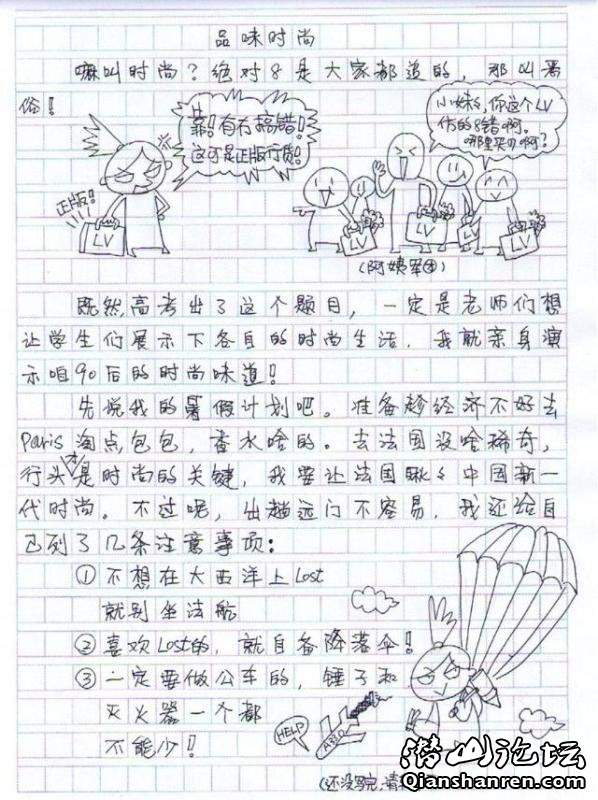 品味时尚
嘛叫时尚？绝对8是大家都道的，那叫
俗！
靠！有冇搞错！
这可是正版行货！
小妹妹，你这个LV
仿的8错啊。
哪里买哒啊？
正版！
LV
LV
LV
LV
（阿姨军团）
既然高考出了这个题目，一定是老师们想
让学生们展示下各自的时尚生活，我就亲身演
示咱90后的时尚味道！
先说我的暑假计划吧。准备趁经济不好去
Paris淘点包包，香水啥的。去法国没啥稀奇，
行头才是时尚的关键，我要让法国瞅々中国新一
代时尚。不过呢，出趟远门不容易，我还给自
己列了几条注意事项：
① 不想在大西洋上Lost
就别坐法航
② 喜欢Lost的，就自备降落伞！
③ 一定要做公车的，锤子和
灭火器一个都
不能少！
HELP
A330
（还没完，请
潜山论坛
Qianshanren.com